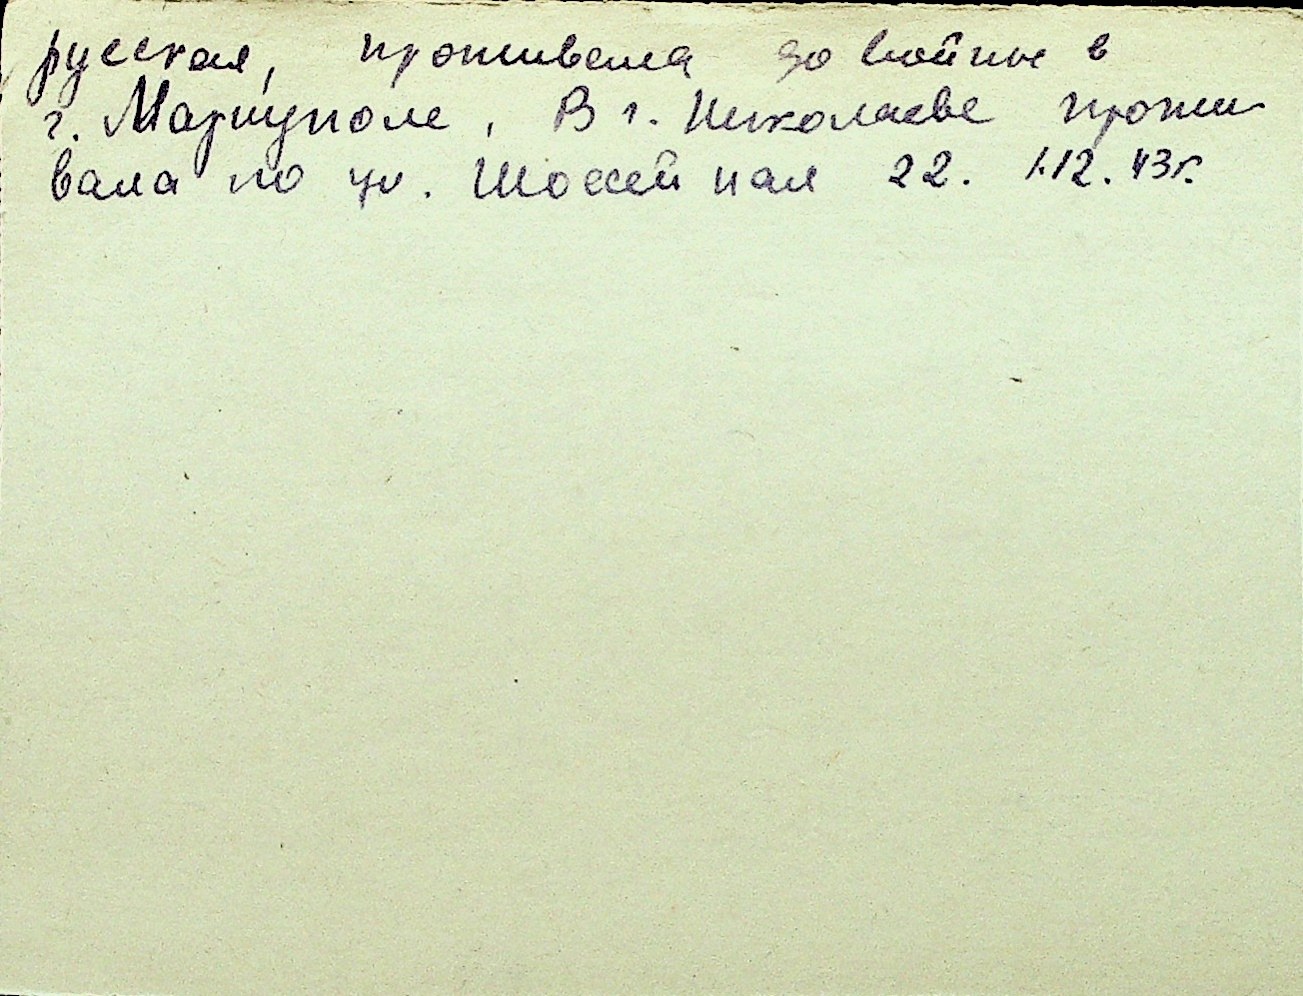 русская, проживала до войны в
г. Мариуполе, В г. Николаеве прожи
вала по ул. Шоссейная 22. 1.12.43г.